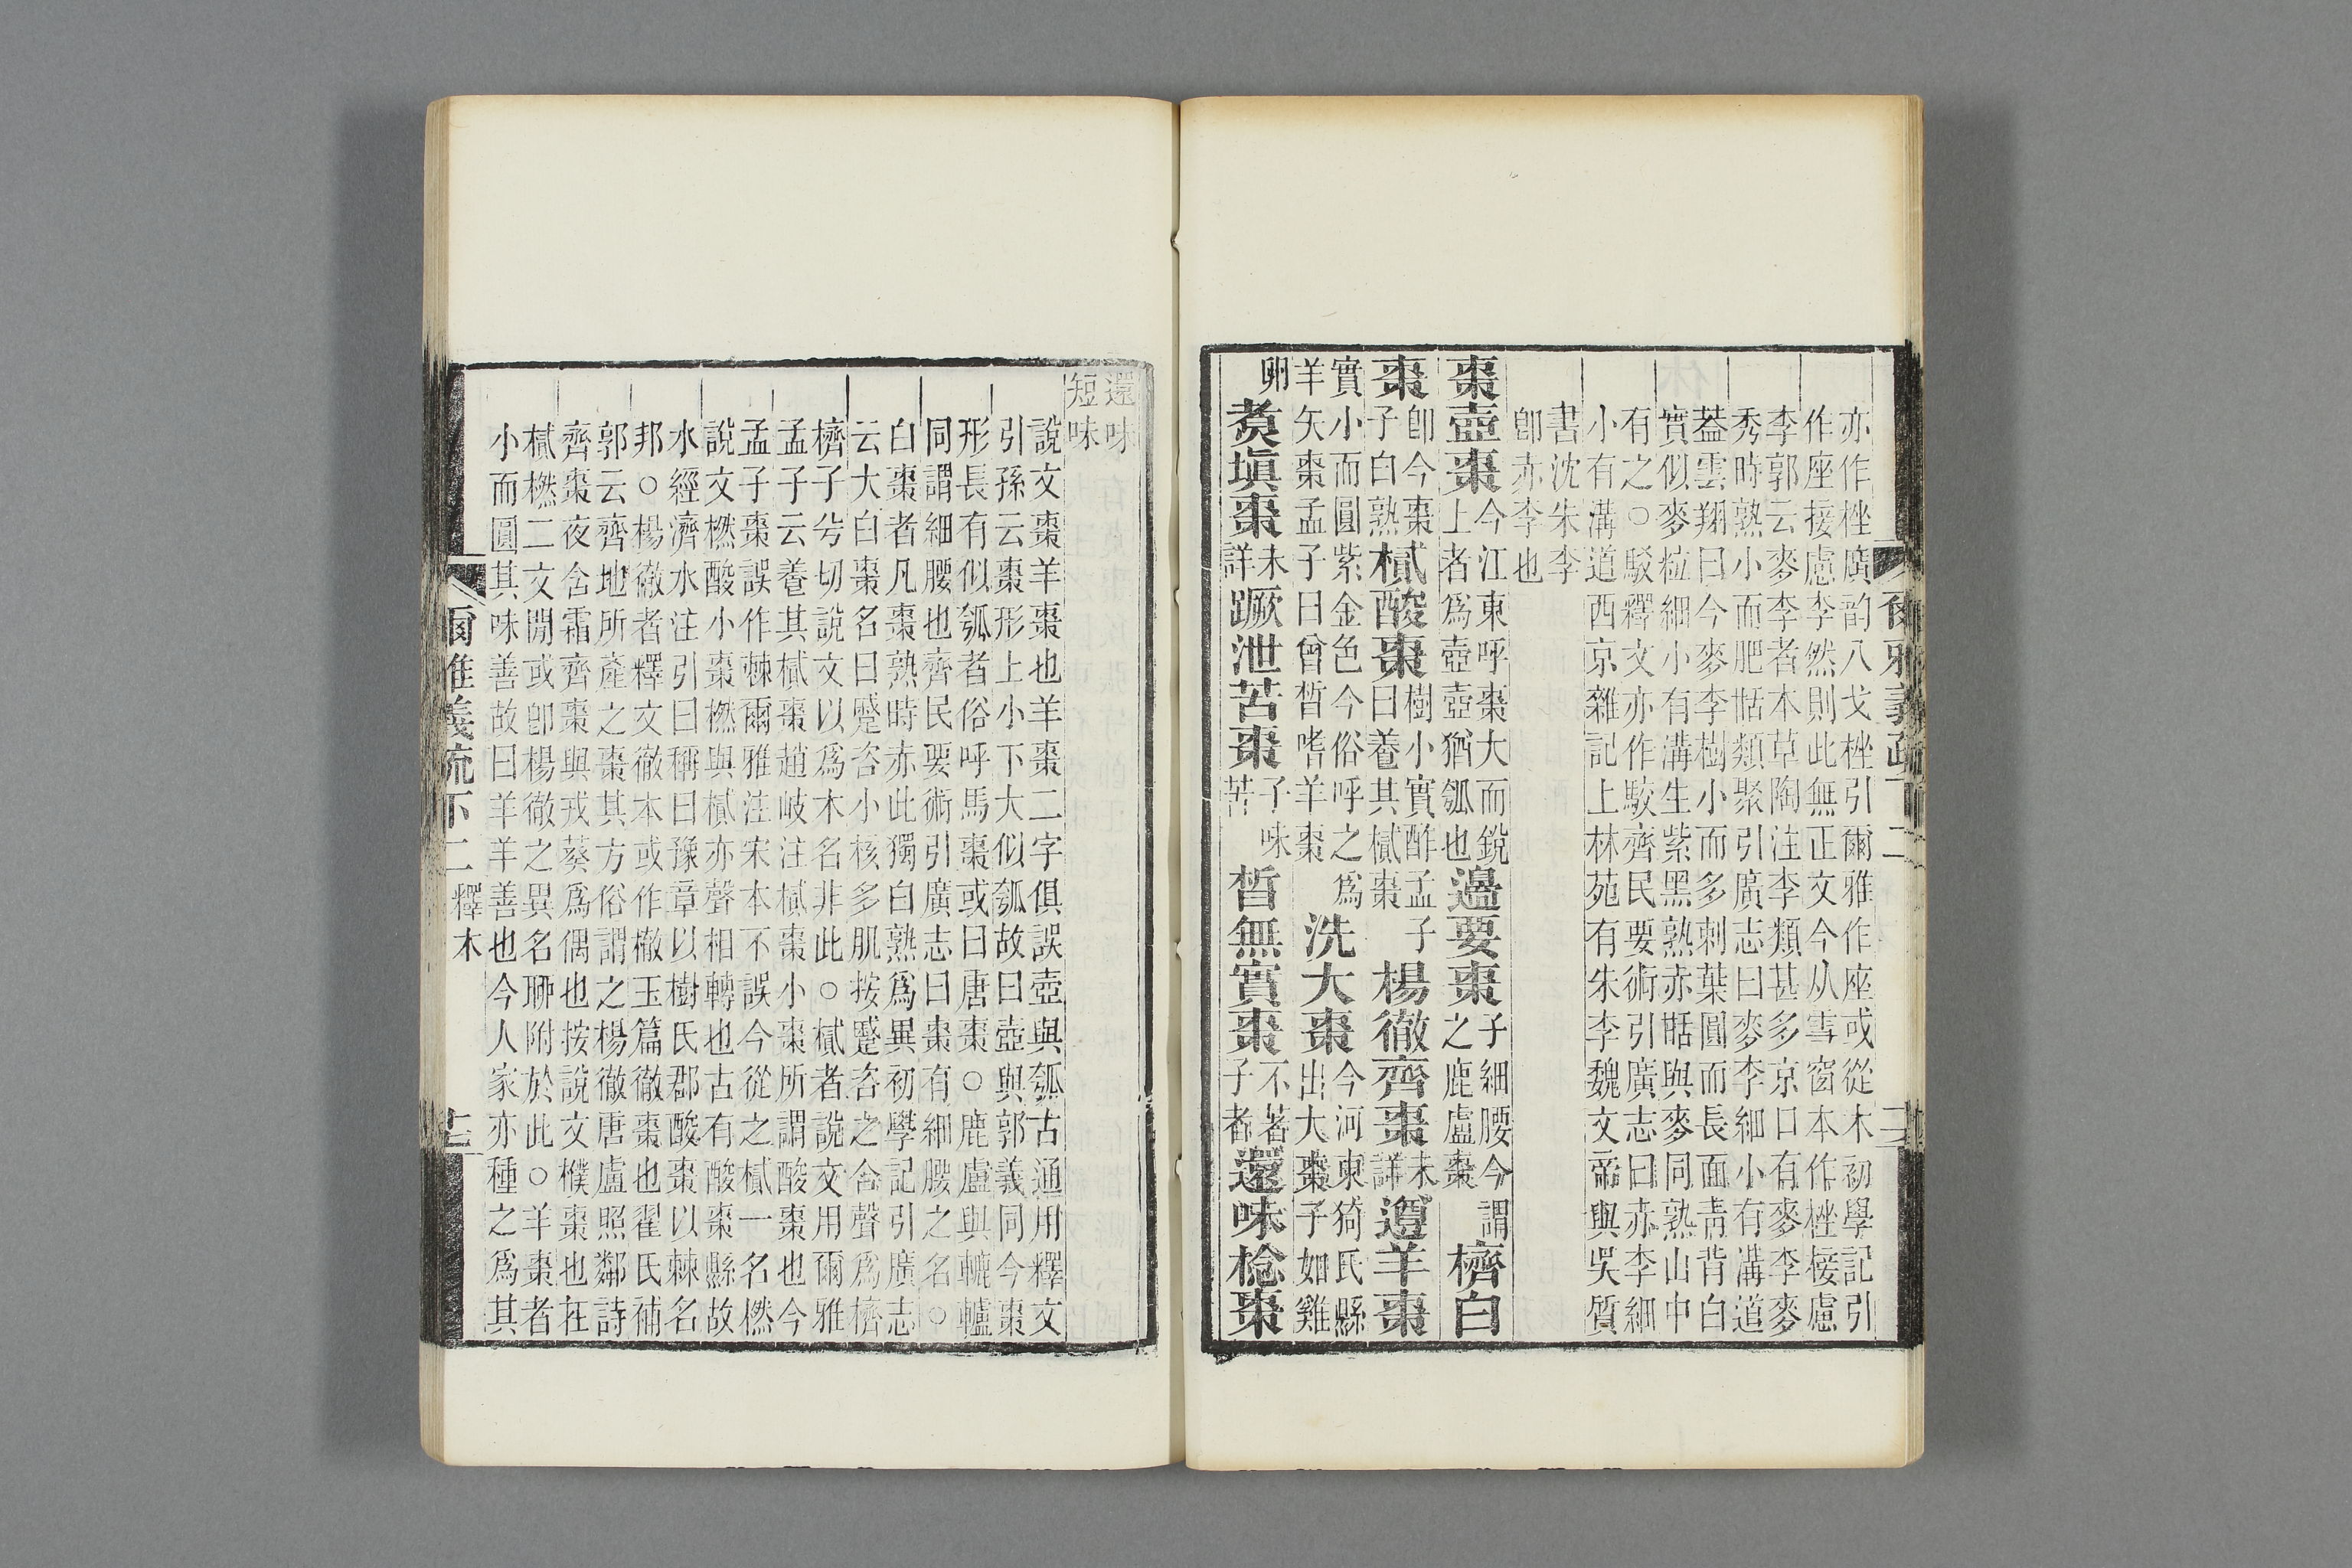 爾雅義疏 下二 十二
亦作㭫廣韵八戈㭫引爾雅作座或從木初學記引
作座接慮李然則此無正文今从雪窗本作㭫椄慮
李郭云麥李者本草陶注李類甚多京口有麥李麥
秀時熟小而肥甛類聚引廣志曰麥李細小有溝道
葢雲翔曰今麥李樹小而多刺葉圓而長面青背白
實似麥粒細小有溝生紫黑熟赤甛與麥同熟山中
有之○駁釋文亦作駮齊民要術引廣志曰赤李細
小有溝道西京雜記上林苑有朱李魏文帝與吳質
書沈朱李
卽赤李也
棗壺棗今江東呼棗大而銳上者爲壺壺猶瓠也邊要棗子細腰今謂之鹿盧棗櫅白
棗卽今棗子白熟樲酸棗樹小實酢孟子曰養其樲棗楊徹齊棗未詳遵羊棗
實小而圓紫金色今俗呼之爲羊矢棗孟子曰曾晳嗜羊棗洗大棗今河東猗氏縣出大棗子如雞
卵煑塡棗未詳蹶泄苦棗子味苦晳無實棗不著子者還味棯棗
還味短味
說文棗羊棗也羊棗二字俱誤壺與瓠古通用釋文
引孫云棗形上小下大似瓠故曰壺與郭義同今棗
形長有似瓠者俗呼馬棗或曰唐棗○鹿盧與轆轤
同謂細腰也齊民要術引廣志曰棗有細腰之名○
白棗者凡棗熟時赤此獨白熟爲異初學記引廣志
云大白棗名曰蹙咨小核多肌按蹙咨之合聲爲櫅
櫅子兮切說文以爲木名非此○樲者說文用爾雅
孟子云養其樲棗趙岐注樲棗小棗所謂酸棗也今
孟子棗誤作棘爾雅注宋本不誤今從之樲一名橪
說文橪酸小棗橪與樲亦聲相轉也古有酸棗縣故
水經濟水注引曰稱曰豫章以樹氏郡酸棗以棘名
邦○楊徹者釋文徹本或作㯙玉篇㯙棗也翟氏補
郭云齊地所產之棗其方俗謂之楊徹唐盧照鄰詩
齊棗夜含霜齊棗與戎葵爲偶也按說文樸棗也在
樲橪二文閒或卽楊徹之異名聊附於此○羊棗者
小而圓其味善故曰羊羊善也今人家亦種之爲其
爾雅義疏 下二 釋木 十二